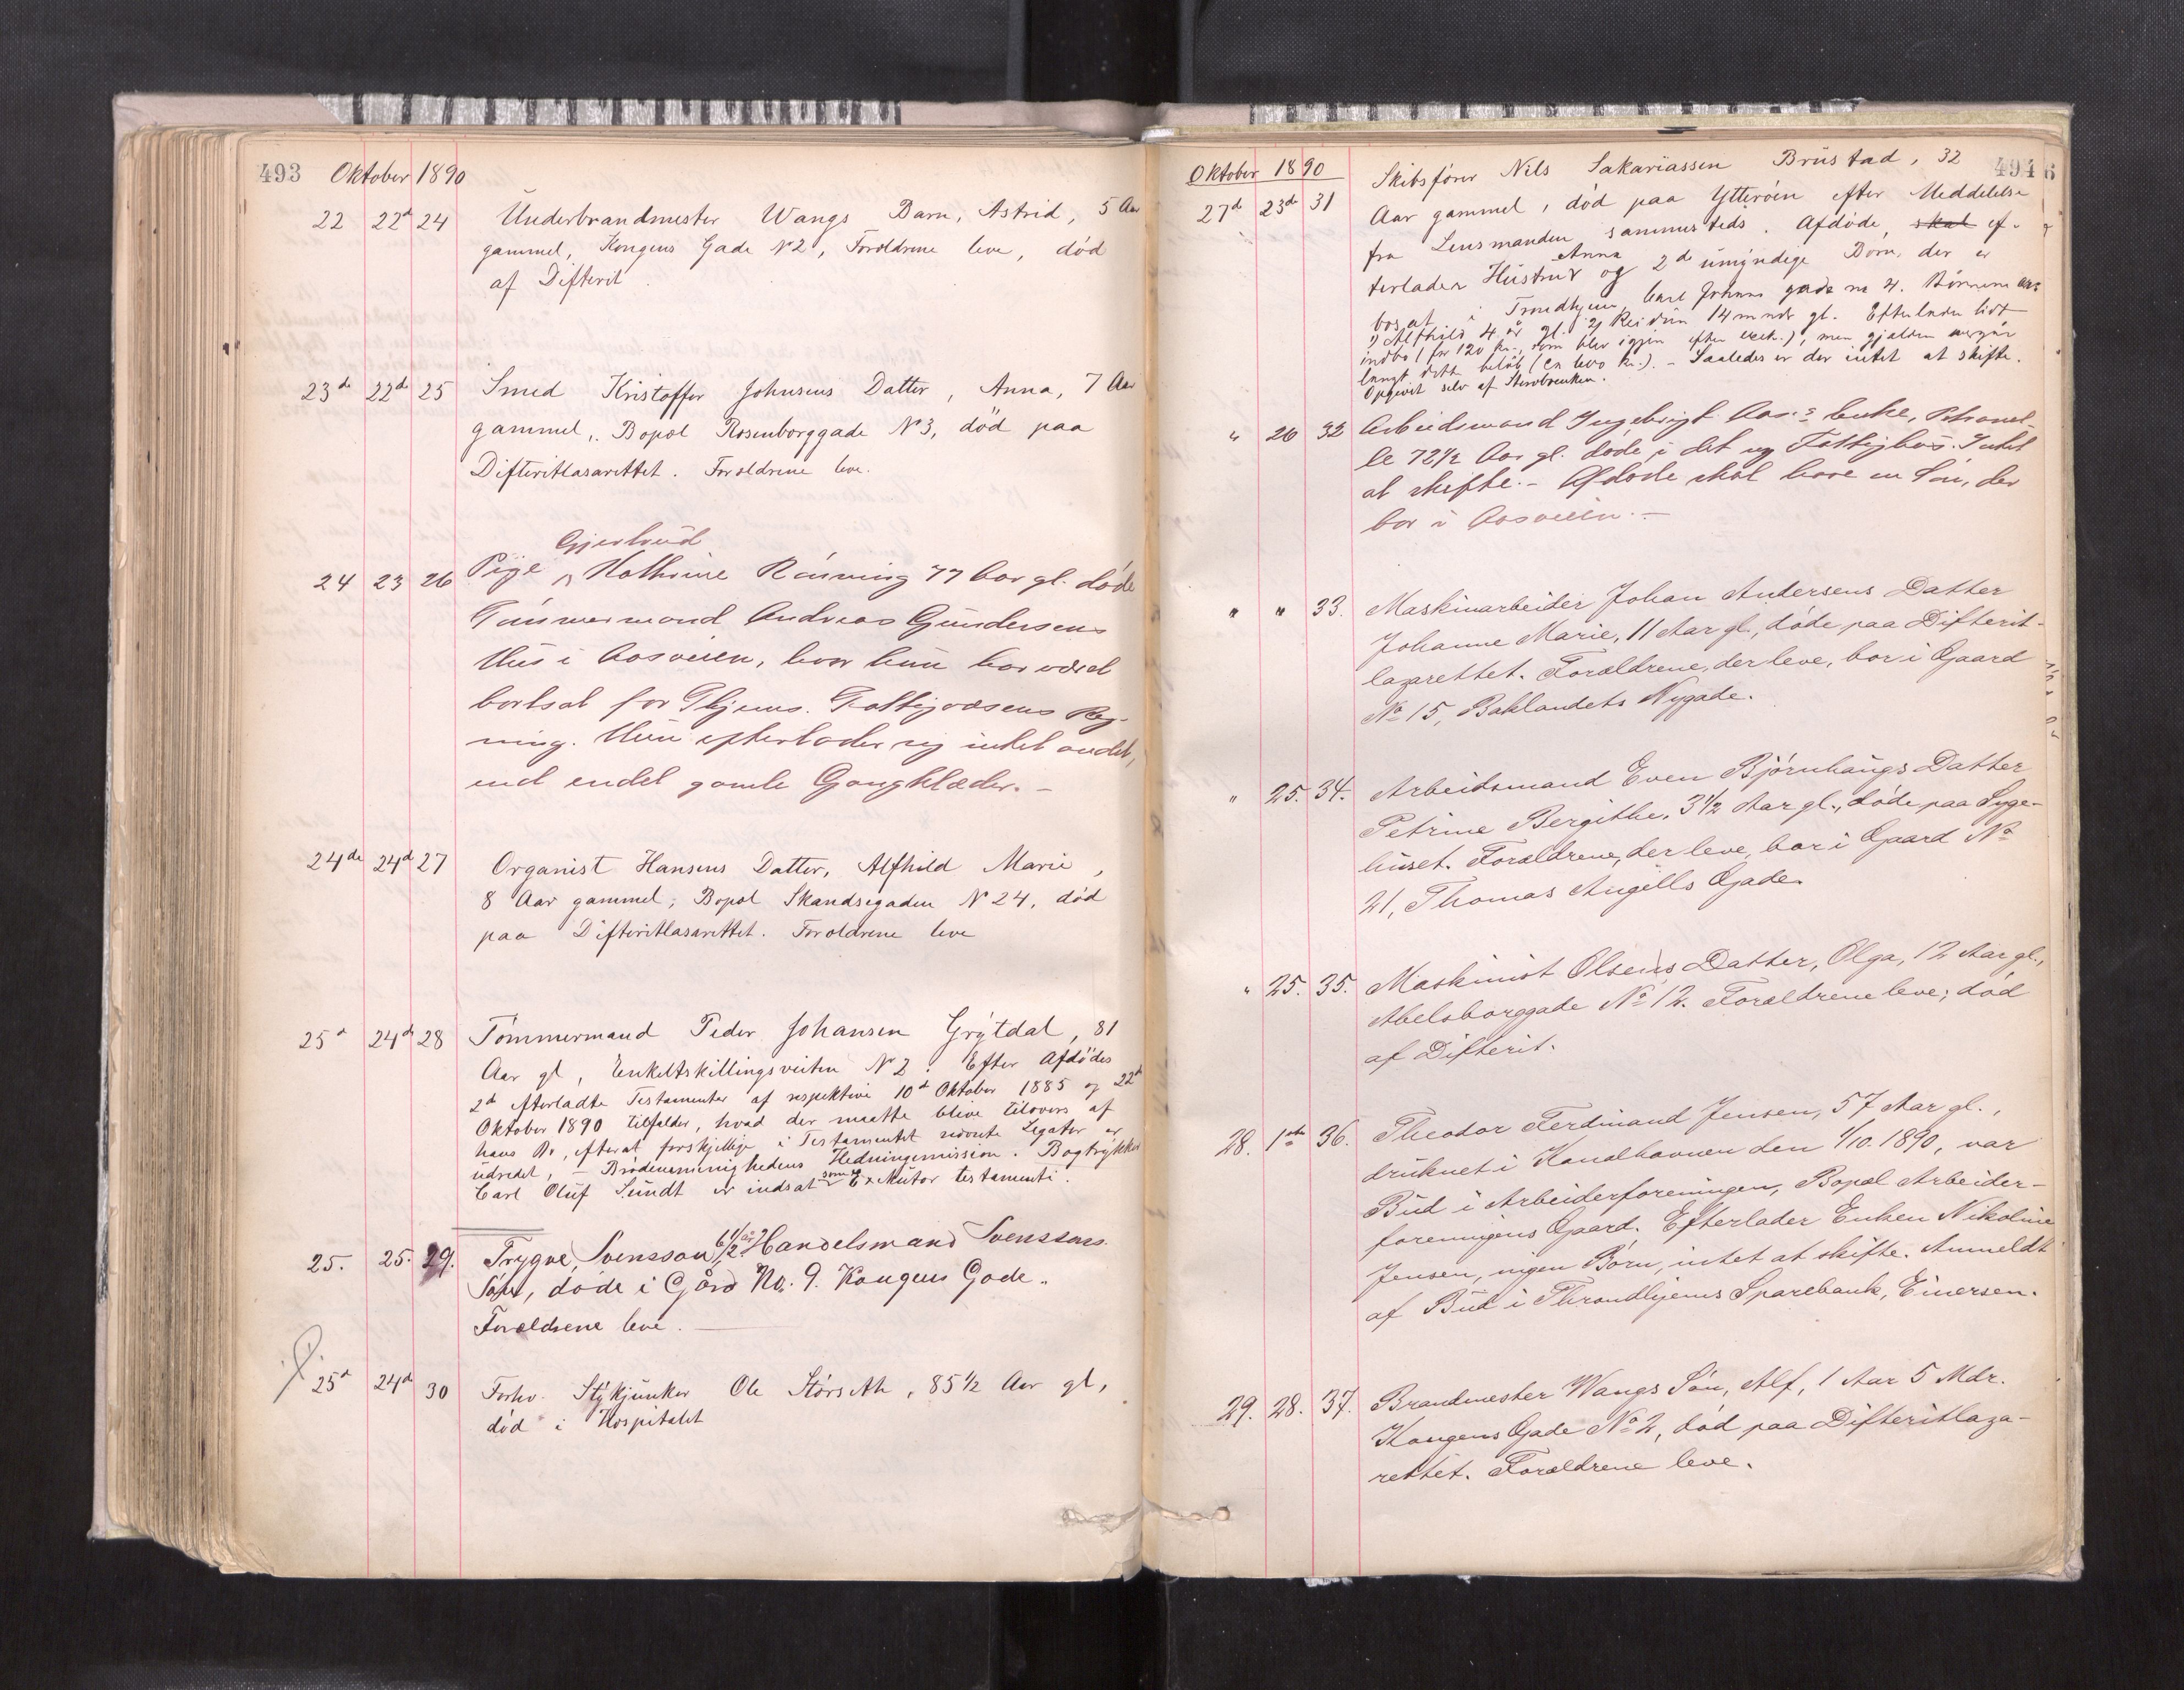 493 Oktober 1890
22 22d 24 Underbrandmester Wangs Barn, Astrid, 5 Aar
gammel, Kongens Gade N 2, Forældrene leve, død
af Difterit.
23de 22d 25 Smed Kristoffer Johnsens Datter, Anna, 7 Aar
gammel, Bopæl Rosenborggade N 3, død paa
Difteritlasarettet. Forældrene leve.
Gjertrud
24 23 26 Pige Kathrine Rønning 77 Aar gl. døde
Tømmermand Andreas Gundersens
Hus i Aasveien, hvor hun har været
bortsat for Thjems. Fattigvæsens Reg-
ning. Hun efterlader sig intet andet,
end endel gamle Gangklæder. -
24de 24d 27 Organist Hansens Datter, Alfhild Marie,
8 Aar gammel, Bopæl Skandsegaden N 24, død
paa Difteritlasarettet. Forældrene leve
25d 24d 28 Tømmermand Peder Johansen Grytdal, 81
Aar gl, Enkeltskillingsveiten N 2. Efter Afdødes
2d efterladte Testamenter af respektive 10d Oktober 1885 og 22d
Oktober 1890 tilfalder, hvad der maatte blive tilovers af
hans Bo, efterat forskjellige i Testamentet nævnte Legater er
udredet, - Brødremenighedens Hedningemission. Bogtrykker
Carl Oluf Sundt er indsat som Exekutor testamenti.
25. 25. 29. Trygve Svensson, 6 1/2 år Handelsmand Svenssons
Søn, døde i Gård No. 9. Kongens Gade.
Forældrene leve.
25d 24d 30 Forhv. Stykjunker Ole Størseth, 85 1/2 Aar gl,
død i Hospitalet
Oktober 1890 494
27d 23de 31 Skibsfører Nils Sakariassen Brustad, 32
Aar gammel, død paa Ytterøen efter Meddelelse
fra Lensmanden sammesteds. Afdøde, skal ef-
terlader Hustru Anna og 2de umyndige Børn, der er
bosat i Trondhjem, Carl Johans gade no 4. Børnene ere:
1) Alfhild 4 år gl. 2) Reidun 14 mndr gl. Efterlader lidt
indbo (for 120 kr., som blev igjen efter), men gjælden overgår
langt dette beløb. - Saaledes er der intet at skifte.
Opgivet selv af Stervboenken.
" 26 32 Arbeidsmand Ingebrigt Aas's Enke, Petronel-
le 72 1/2 Aar gl. døde i det ny Fattighus. Intet
at skifte. - Afdøde skal have en Søn, der
bor i Aasveien. -
" " 33. Maskinarbeider Johan Andersens Datter
Johanne Marie, 11 Aar gl., døde paa Difterit-
lazarettet. Forældrene, der leve, bor i Gaard
No 15, Baklandets Nygade.
" 25. 34. Arbeidsmand Even Bjørnhaugs Datter
Petrine Bergithe, 3 1/2 Aar gl., døde paa Syge-
huset. Forældrene, der leve, bor i Gaard No
21, Thomas Angells Gade.
" 25. 35. Maskinist Olsens Datter, Olga, 12 Aar gl.,
Abelsborggade No 12. Forældrene leve; død
af Difterit.
28. 1ste 36. Theodor Ferdinand Jensen, 57 Aar gl.,
druknet i Kanalhavnen den 1/10. 1890, var
Bud i Arbeiderforeningen, Bopæl Arbeider-
foreningens Gaard. Efterlader Enken Nikoline
Jensen, ingen Børn, intet at skifte. Anmeldt
af Bud i Throndhjems Sparebank, Einersen.
29. 28. 37. Brandmester Wangs Søn, Alf, 1 Aar 5 Mdr.
Kongens Gade No 2, død paa Difteritlaza-
rettet. Forældrene leve.